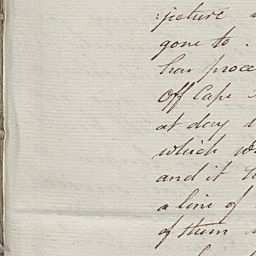 :jecture
gone to
has proce
Off Cape
at day
which w
and it
a line of
of them